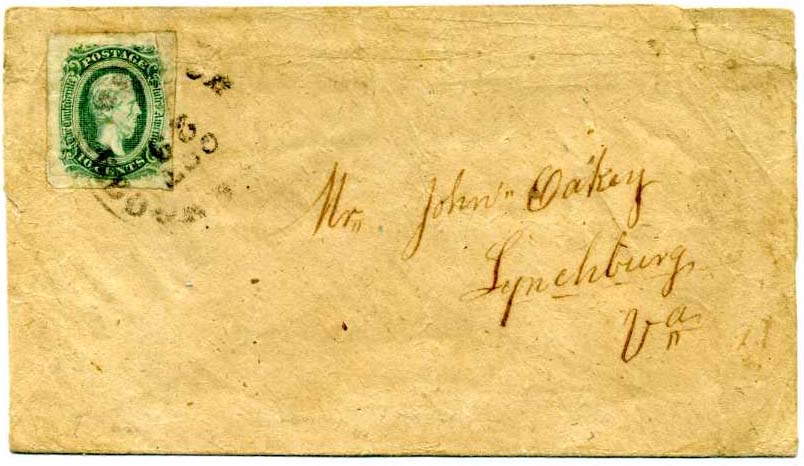 POSTAGE
The Confederate States of America
10 CENTS
Mr. John Oakey
Lynchburg
Va